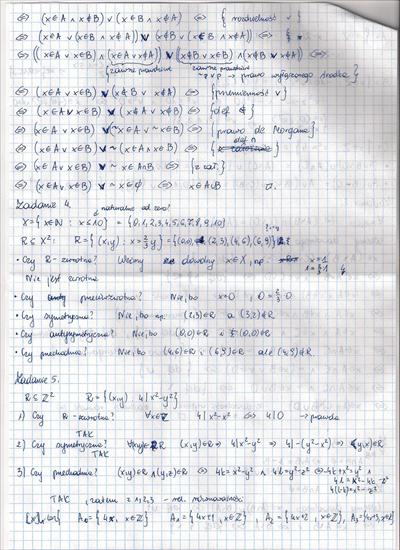 ⇔ (x∈A ∧ x∉B) ∨ (x∈B ∧ x∉A) ⇔ { rozdzielność ∨ }
⇔ (x∈A ∨ (x∈B ∧ x∉A)) ∧ (x∉B ∨ (x∈B ∧ x∉A)) ⇔
⇔ ((x∈A ∨ x∈B) ∧ (x∈A ∨ x∉A)) ∧ ((x∉B ∨ x∈B) ∧ (x∉B ∨ x∉A)) ⇔
zawsze prawdziwe zawsze prawdziwe
→ prawo wyłączonego środka }
⇔ (x∈A ∨ x∈B) ∧ (x∉B ∨ x∉A) ⇔ {przemienność ∨}
⇔ (x∈A ∨ x∈B) ∧ (x∉A ∨ x∉B) ⇔ {def ∉}
⇔ (x∈A ∨ x∈B) ∧ (~x∈A ∨ ~x∈B) ⇔ {prawo de Morgana}
⇔ (x∈A ∨ x∈B) ∧ ~(x∈A ∧ x∈B) ⇔ { def ∩
⇔ (x∈A ∨ x∈B) ∧ ~ x∈A∩B ⇔ {z zał.}
⇔ (x∈A ∨ x∈B) ∧ ~ x∈∅ ⇔ x∈A∪B □.
Zadanie 4.
naturalne od zera!
X={x∈N : x≤10} = {0,1,2,3,4,5,6,7,8,9,10}
R⊆X²: R={(x,y) : x=2/3 y}={(0,0), (2,3), (4,6), (6,9)}
• Czy R - zwrotna? Weźmy dowolny x∈X, np: x=1
1=2/3·1
Nie jest zwrotna
• Czy przeciwzwrotna? Nie, bo x=0, 0=2/3·0
• Czy symetryczna? Nie, bo np. (2,3)∈R a (3,2)∉R
• Czy antysymetryczna? Nie, bo (0,0)∈R i (0,0)∈R
• Czy przechodnia? Nie, bo (4,6)∈R i (6,9)∈R ale (4,9)∉R
Zadanie 5.
R⊆Z² R={(x,y) 4|x²-y²}
1) Czy R - zwrotna? ∀x∈Z 4|x²-x² ⇔ 4|0 → prawda
TAK
2) Czy symetryczna? (x,y)∈R ⇒ 4|x²-y² ⇒ 4|-(y²-x²) ⇒ (y,x)∈R
TAK
3) Czy przechodnia? (x,y)∈R ∧ (y,z)∈R ⇔ 4k=x²-y² ∧ 4l=y²-z² ⇔ -4k+x²=y² ∧
4l=x²-4k-z²
4(l+k)=x²-z²
TAK, zatem z 1,2,3 - rel. równoważności
A₀={4x, x∈Z} A₁={4x+1, x∈Z}, A₂={4x+2, x∈Z}, A₃={4x+3, x∈Z}